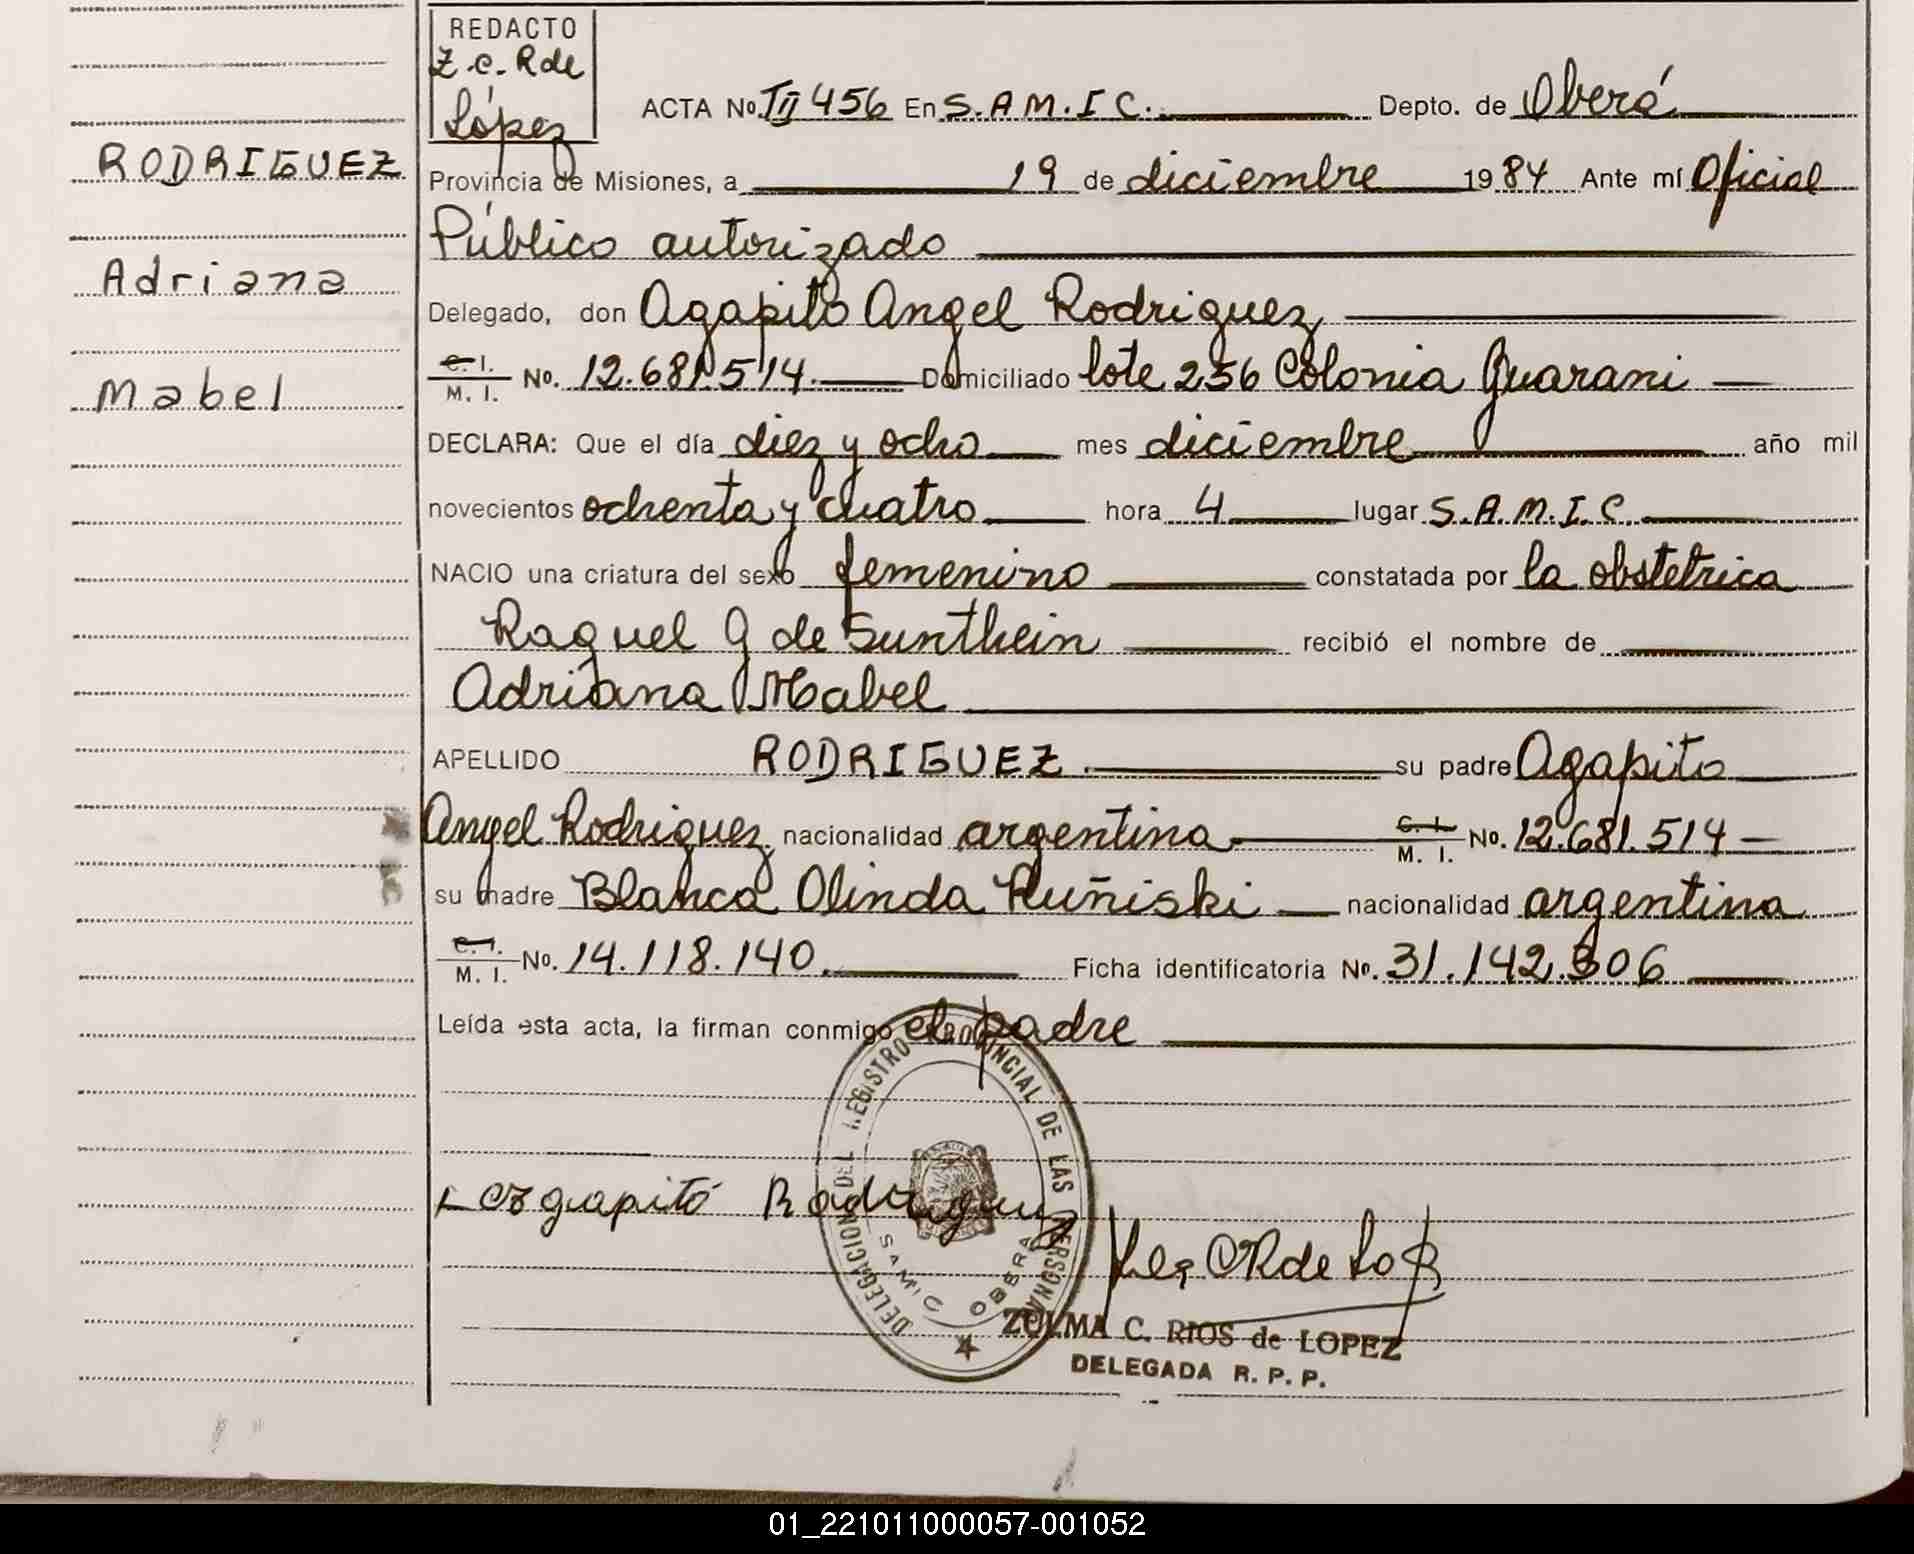 REDACTO
Z.C. R de
López
ACTA No. III 456 En S.A.M.I.C. Depto. de Oberá
RODRIGUEZ
Provincia de Misiones, a 19 de diciembre 1984 Ante mí Oficial
Público autorizado
Adriana
Delegado, don Agapito Angel Rodriguez
C. I.
M. I. No. 12.681.514. Domiciliado lote 256 Colonia Guarani
Mabel
DECLARA: Que el día diez y ocho mes diciembre año mil
novecientos ochenta y cuatro hora 4 lugar S.A.M.I.C.
NACIO una criatura del sexo femenino constatada por la obstetrica
Raquel G de Sunthein recibió el nombre de
Adriana Mabel
APELLIDO RODRIGUEZ. su padre Agapito
Angel Rodriguez nacionalidad argentina C. I.
M. I. No. 12.681.514
su madre Blanca Olinda Kuñiski nacionalidad argentina
C. I.
M. I. No. 14.118.140. Ficha identificatoria No. 31.142.306
Leída esta acta, la firman conmigo el padre
DELEGACION DEL REGISTRO PROVINCIAL DE LAS PERSONAS
SAMIC OBERA
Agapito Rodriguez
ZULMA C. RIOS de LOPEZ
DELEGADA R. P. P.
01_221011000057-001052